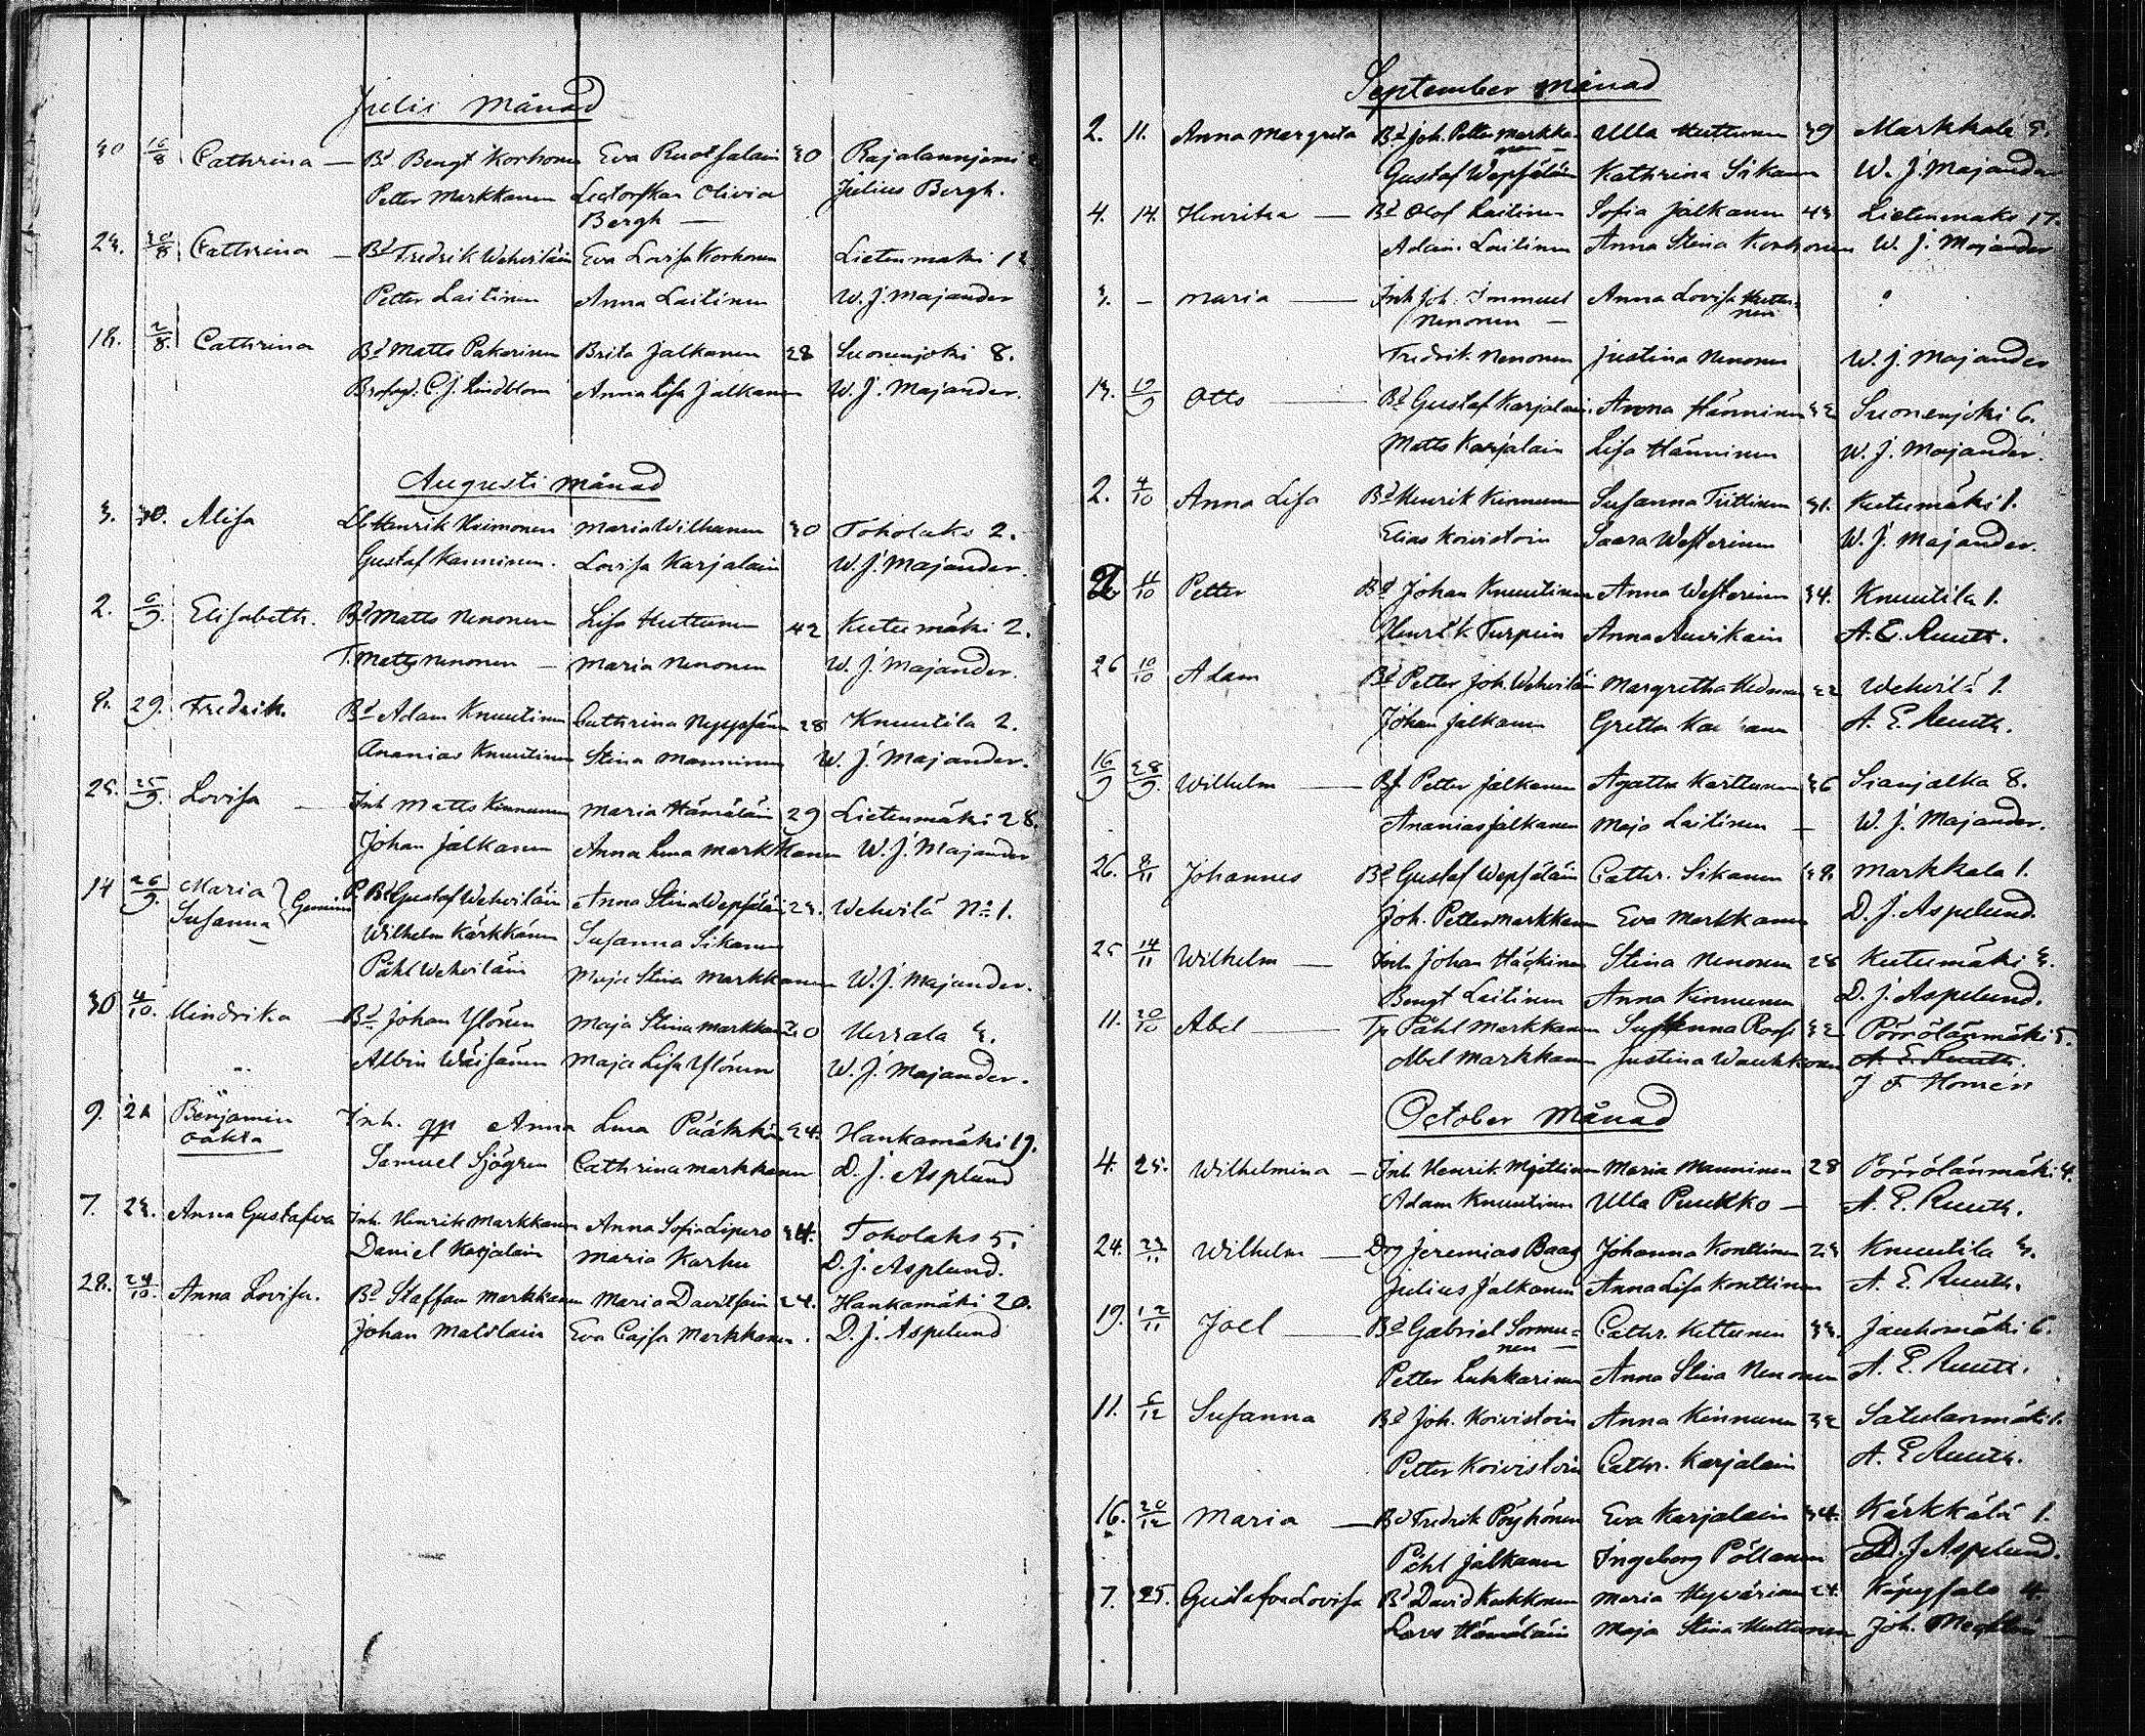 Julii Månad
30 16/8 Cathrina — Bd Bengt Korhonen Eva Ruotsalain 30 Rajalanniemi
Petter Markkanen Lectorskan Olivia Julius Bergh.
Bergh —
23. 30/8 Cathrina — Bd Fredrik Wehviläin Eva Lovisa Korhonen Lietenmaki 12
Petter Laitinen Anna Laitinen W. J. Majander
18. 2/8. Cathrina Bd Matts Pakarinen Brita Jalkanen 28 Suonenjoki 8.
C. J. Lindblom Anna Lisa Jalkanen W. J. Majander.
Augusti månad
3. 30. Alisa Henrik Heimonen Maria Wilhunen 30 Toholaks 2.
Gustaf Kanninen. Lovisa Karjalain W. J. Majander.
2. 6/9. Elisabeth. Bd Matts Nenonen Lisa Huttunen 42 Kutumäki 2.
T. Matts Nenonen — Maria Nenonen W. J. Majander.
8. 29. Fredrik. Bd Adam Knuutinen Cathrina Nyyssönen 28 Knuutila 2.
Ananias Knuutinen Stina Manninen W. J. Majander.
25. 25/9. Lovisa — Inh Matts Kinnunen Maria Hämäläin 29 Lietenmäki 28.
Johan Jalkanen Anna Lena Markkanen W. J. Majander
14 26/9. Maria Susanna } Gemini Bd Gustaf Wehviläin Anna Stina Wepsäläin 23. Wehvilä No 1.
Wilhelm Kärkkänen Susanna Sikanen
Påhl Wehviläin Maja Stina Markkanen W. J. Majander.
30 4/10. Hindrika — Bd Johan Ylönen Maja Stina Markkan 30 Herrala 3.
Albin Wäisänen Maja Lisa Ylönen W. J. Majander.
9. 21 Benjamin Inh. qp Anna Lena Päätkkön 34. Hankamäki 19.
oäkta
Samuel Sjögren Cathrina Markkanen D. J. Asplund
7. 23. Anna Gustafva Inh. Henrik Markkanen Anna Sofia Lipero 34. Toholaks 5.
Daniel Karjalain Maria Karhu D. J. Asplund.
28. 24/10. Anna Lovisa. Bd Staffan Markkanen Maria Davitsain 24. Hankamäki 20.
Johan Matilain Eva Cajsa Markkanen. D. J. Aspelund
September månad
2. 11. Anna Margreta Bd Joh. Petter Markka- Ulla Huttunen 39 Markkala 9.
nen —
Gustaf Wepsäläin Kathrina Sikanen W. J. Majander
4. 14. Henrika — Bd Olof Laitinen Sofia Jalkanen 43 Lietenmaki 17.
Adam Laitinen Anna Stina Korhonen W. J. Majander
3. — Maria — Inh Joh. Immanuel Anna Lovisa Huttu-
Nenonen — nen
Fredrik Nenonen Justina Nenonen W. J. Majander
13. 19/9 Otto — Bd Gustaf Karjalain. Anna Hänninen 32 Suonenjoki 6.
Matts Karjalain Lisa Hänninen W. J. Majander.
2. 4/10 Anna Lisa Bd Henrik Kinnunen Susanna Tiittinen 31. Kutumäki 1.
Elias Koivistoin Saara Westerinen W. J. Majander.
11/10 Petter Bd Johan Knuutinen Anna Westerinen 34. Knuutila 1.
Henrik Turpein Anna Auvikain A. E. Ruuth.
26 10/10 Adam Bd Petter Joh. Wehviläin Margretha Hedman 32 Wehvilä 1.
Johan Jalkanen Gretta A. E. Ruuth.
16/9 28/9. Wilhelm — Bd Petter Jalkanen Agatha Karttunen 36 Sianjalka 8.
Ananias Jalkanen Maja Laitinen — W. J. Majander.
26. 8/11 Johannes Bd Gustaf Wepsäläin Cathr. Sikanen 39. Markkala 1.
Joh. Petter Markkanen Eva Markkanen D. J. Aspelund.
25 14/11 Wilhelm — Inh Johan Häckinen Stina Nenonen 28 Kutumäki 3.
Bengt Laitinen Anna Kinnunen D. J. Aspelund.
11. 20/10 Abel — Tp Påhl Markkanen Susanna Roos 32 Pörrölänmäki 5.
Abel Markkanen Justina Wauhkonen A. E. Ruuth.
J F Homén
October Månad
4. 25. Wilhelmina — Inh Henrik Miettinen Maria Manninen 28 Pörrölänmäki 4.
Adam Knuutinen Ulla Puukko — A. E. Ruuth.
24. 23/11 Wilhelm — Drg Jeremias Baag Johanna Konttinen 23 Knuutila 3.
Julius Jalkanen Anna Lisa Konttinen A. E. Ruuth.
19. 12/11 Joel — Bd Gabriel Sormu= Cathr. Kettunen 33. Jauhomäki 6.
nen —
Petter Lukkarinen Anna Stina Nenonen A. E. Ruuth.
11. 6/12 Susanna Bd Joh. Koivistoin Anna Kinnunen 32 Satulanmäki 1.
Petter Koivistoin Cathr. Karjalain A. E Ruuth.
16. 20/12 Maria — Bd Fredrik Pöyhönen Eva Karjalain 34. Kärkkälä 1.
Påhl Jalkanen Ingeborg Pöllänen D. J Aspelund.
7. 25. Gustafva Lovisa Bd David Kukkonen Maria Hyvärinen 24. 4.
Lars Hämäläin Maja Stina Huttunen Joh.